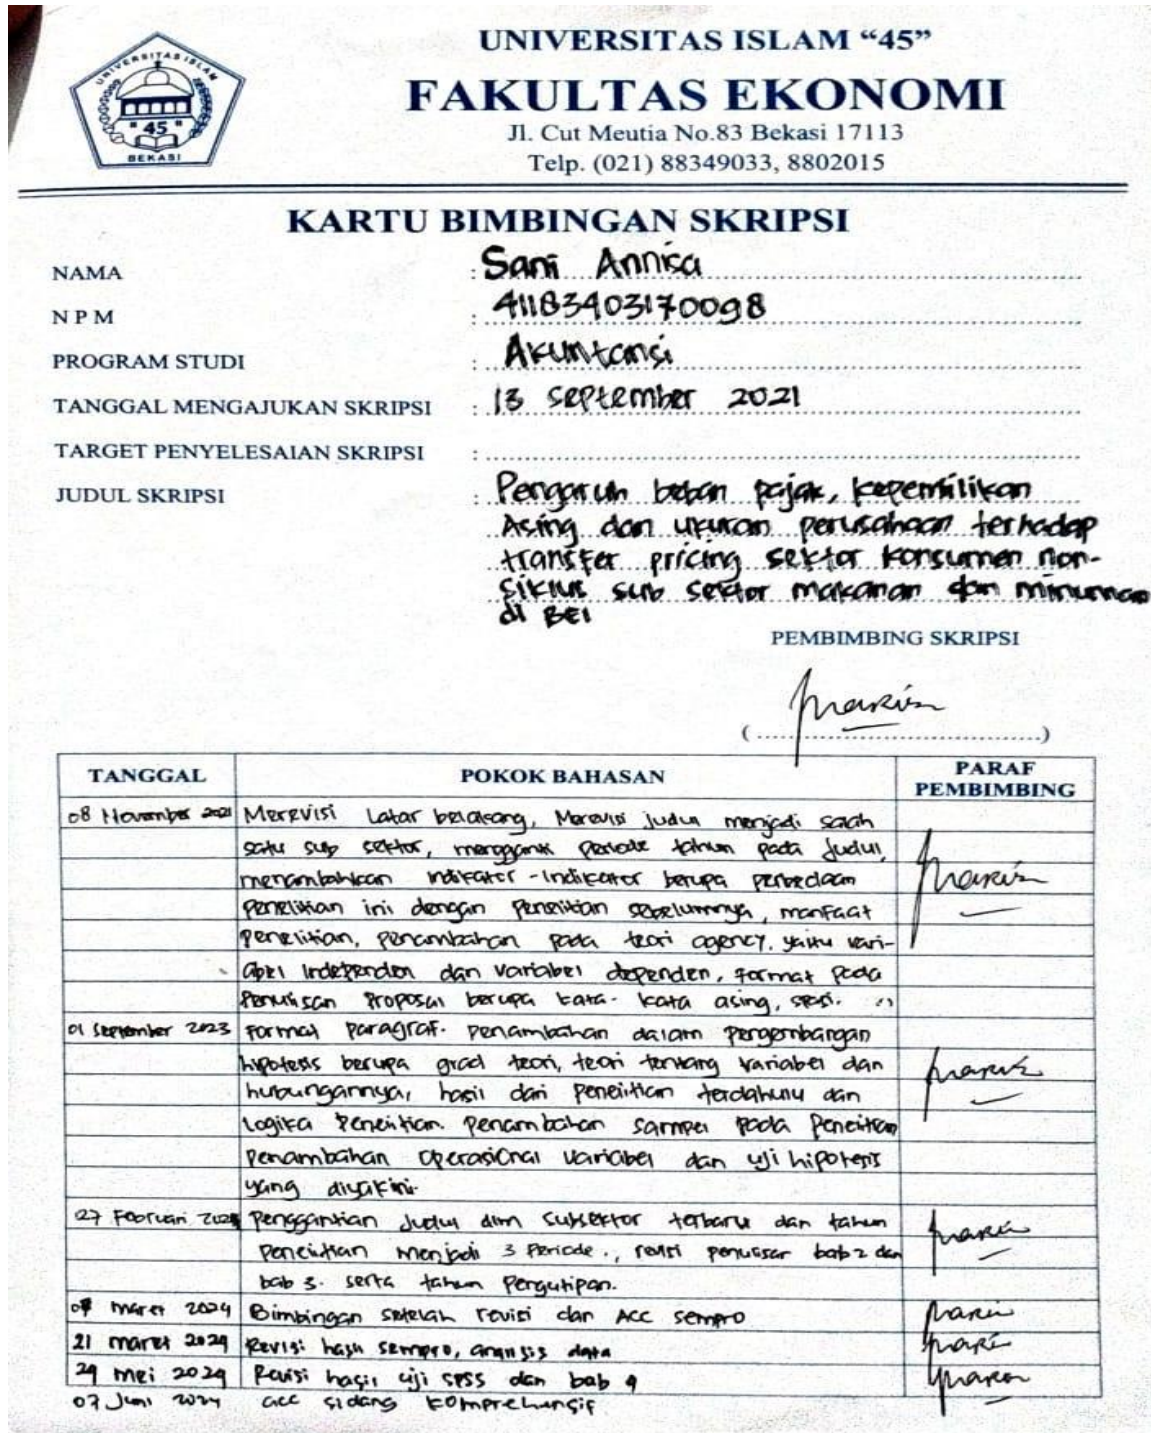 UNIVERSITAS ISLAM
"45"
BEKASI
UNIVERSITAS ISLAM “45”
FAKULTAS EKONOMI
Jl. Cut Meutia No.83 Bekasi 17113
Telp. (021) 88349033, 8802015
KARTU BIMBINGAN SKRIPSI
NAMA : Sani Annisa
NPM : 41183403170098
PROGRAM STUDI : Akuntansi
TANGGAL MENGAJUKAN SKRIPSI : 13 September 2021
TARGET PENYELESAIAN SKRIPSI :
JUDUL SKRIPSI : Pengaruh beban pajak, kepemilikan
Asing dan ukuran perusahaan terhadap
transfer pricing sektor konsumen non-
siklus sub sektor makanan dan minuman
di BEI
PEMBIMBING SKRIPSI
TANGGAL POKOK BAHASAN PARAF PEMBIMBING
08 November 2021 Merevisi Latar belakang, Merevisi judul menjadi salah
satu sub sektor, mengganti periode tahun pada Judul,
menambahkan indikator-indikator berupa perbedaan
penelitian ini dengan penelitian sebelumnya, manfaat
penelitian, penambahan pada teori agency, yaitu vari-
abel independen dan variabel dependen, format pada
Penulisan Proposal berupa kata-kata asing, spasi.
01 September 2023 Format paragraf. penambahan dalam pengembangan
hipotesis berupa grad teori, teori tentang variabel dan
hubungannya, hasil dari penelitian terdahulu dan
Logika Penelitian. penambahan sampel pada Penelitian
penambahan operasional variabel dan uji hipotesis
yang diyakini.
27 Februari 2024 Penggantian Judul dlm subsektor terbaru dan tahun
Penelitian menjadi 3 Periode., revisi penulisan bab 2 dan
bab 3. serta tahun Pengutipan.
07 maret 2024 Bimbingan setelah revisi dan ACC sempro
21 maret 2024 Revisi hasil sempro, analisis data
29 mei 2024 Revisi hasil uji spss dan bab 4
07 Juni 2024 acc sidang komprehensif